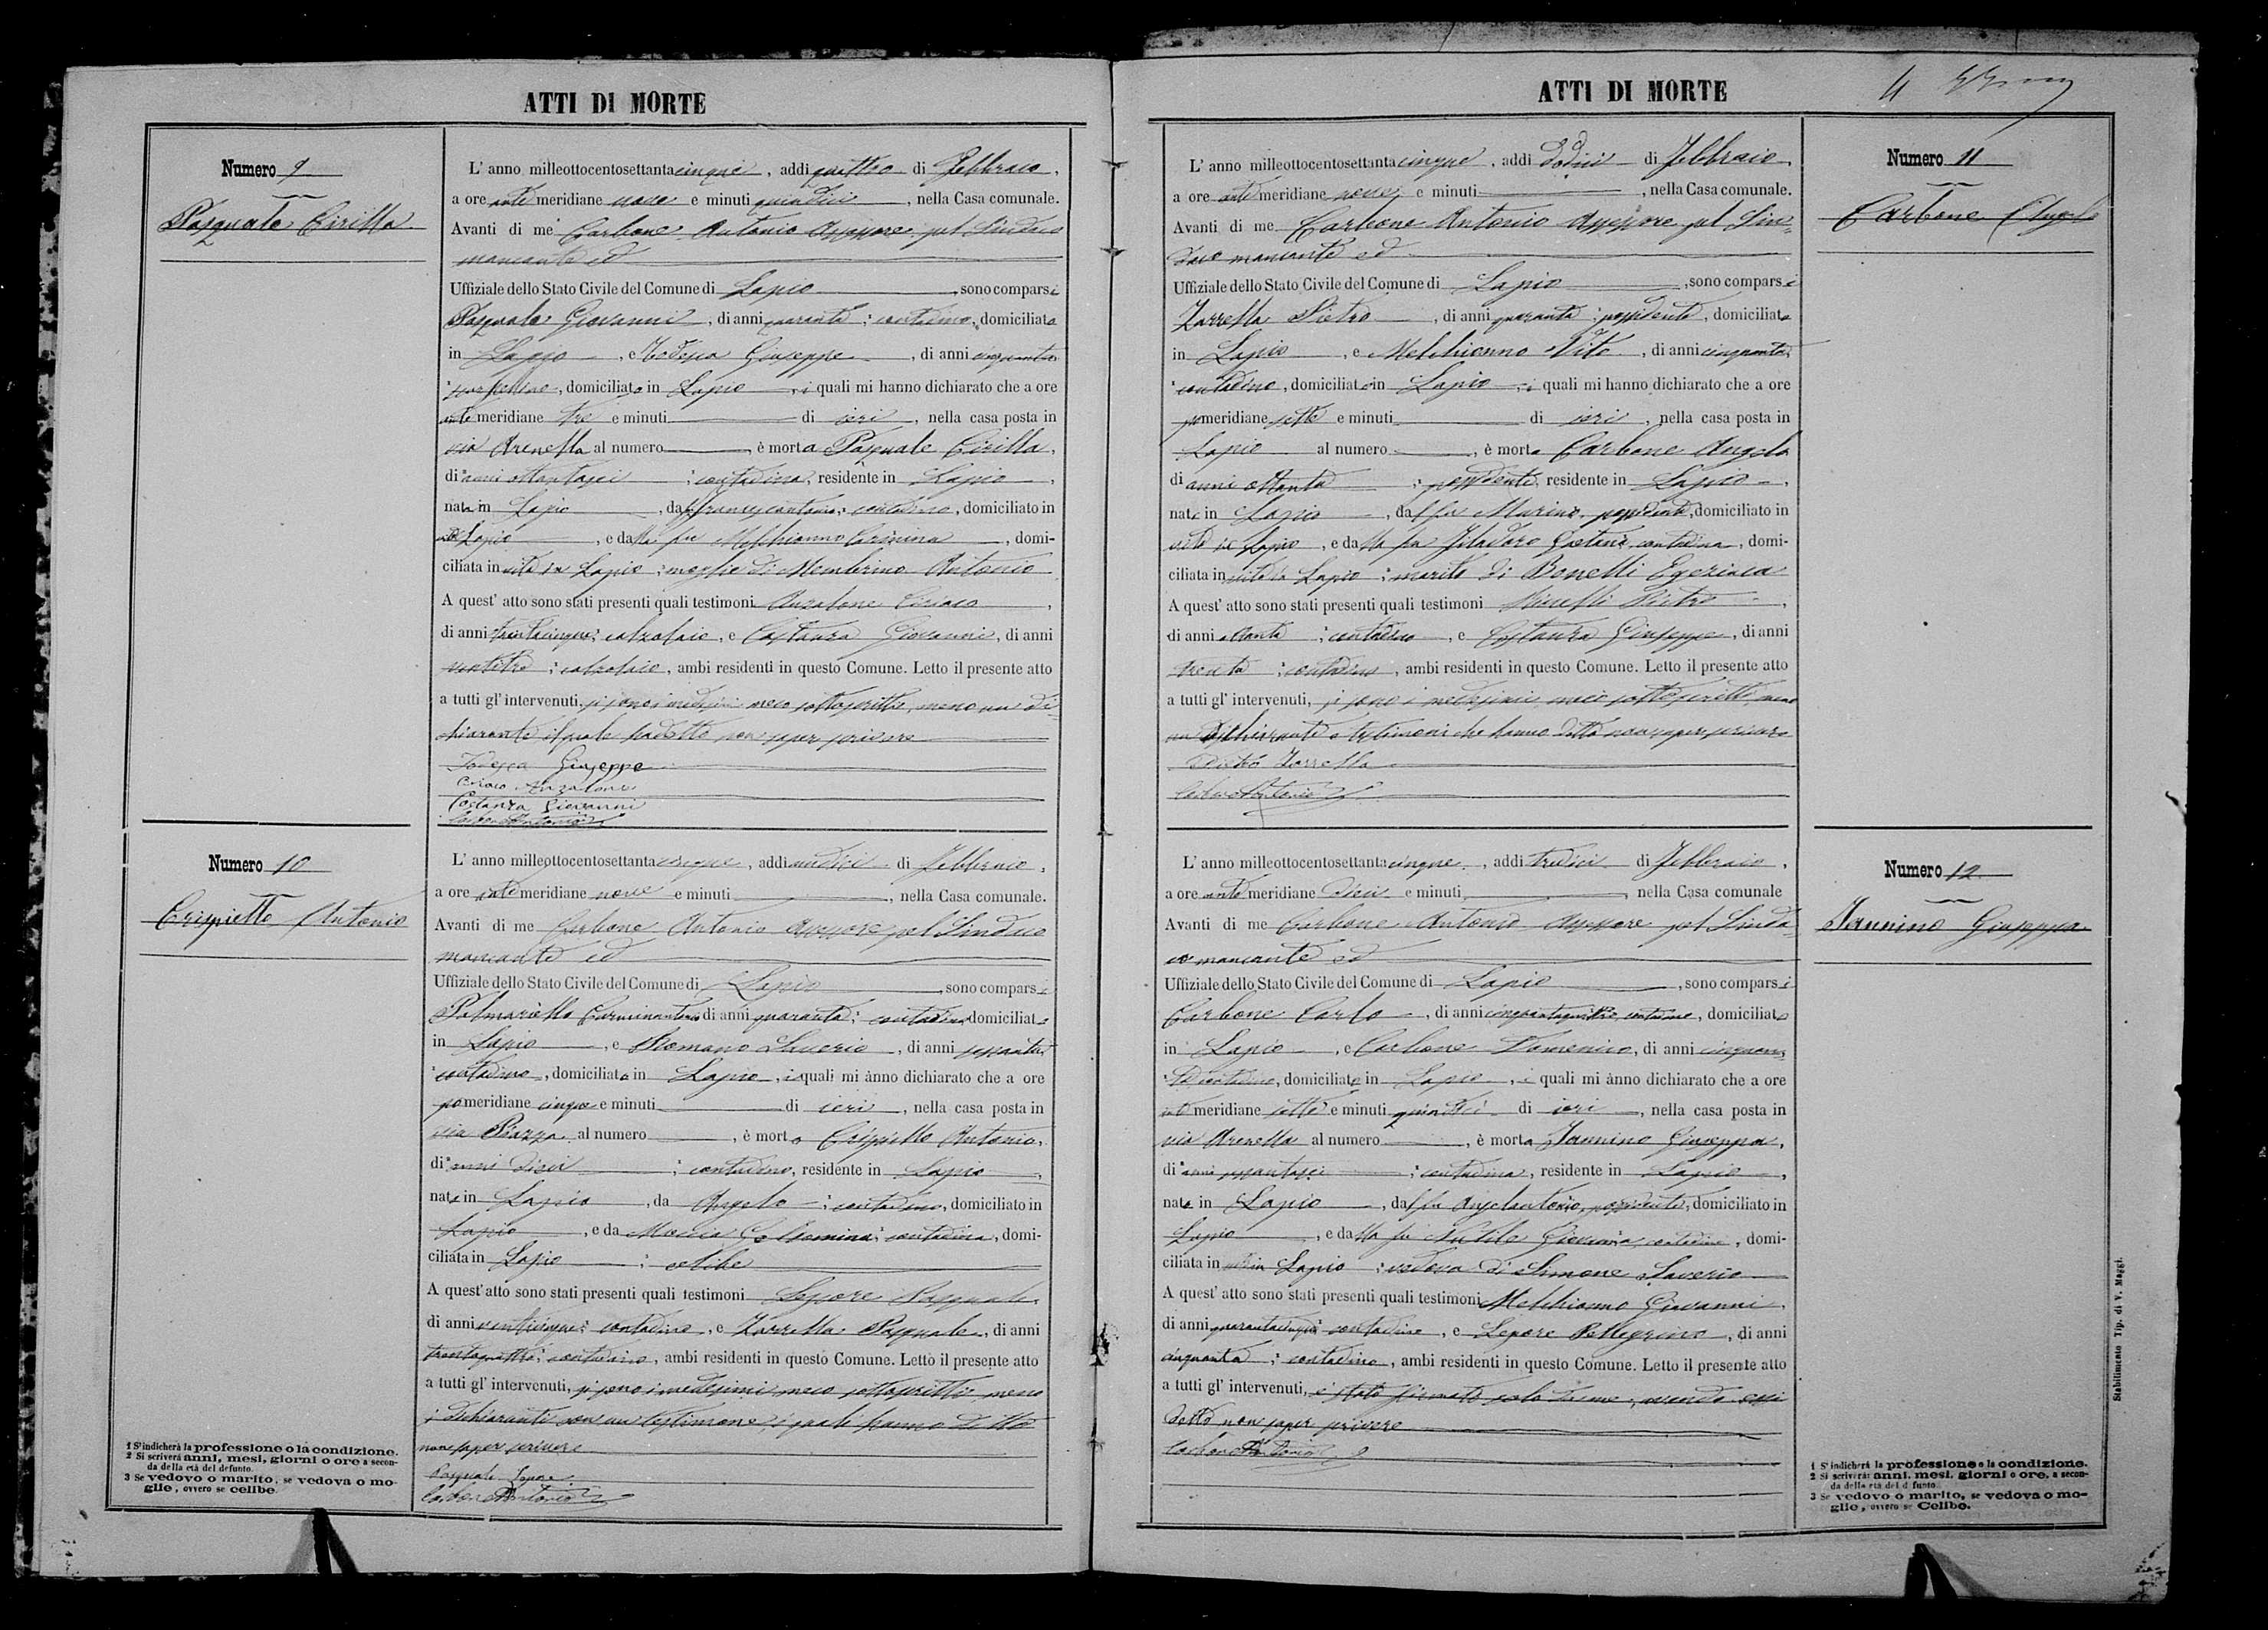 ATTI DI MORTE
Numero 9
Pasquale Cirilla
L' anno milleottocentosettantacinque, addi quattro di Febbraio,
a ore antemeridiane nove e minuti quindici, nella Casa comunale.
Avanti di me Carbone Antonio Assessore pel Sindaco
mancante ed
Uffiziale dello Stato Civile del Comune di Lapio, sono comparsi
Pasquale Giovanni, di anni quaranta; contadino, domiciliato
in Lapio, e Todesca Giuseppe, di anni cinquanta
domiciliato in Lapio, i quali mi hanno dichiarato che a ore
antemeridiane tre e minuti di ieri, nella casa posta in
via Arenella al numero, è morta Pasquale Cirilla,
di anni ottantasei; contadina, residente in Lapio,
nata in Lapio, dal fu Francescantonio; contadino, domiciliato in
Lapio, e dalla fu Melchionno, domi-
ciliata in vita in Lapio; moglie di Membrino Antonio
A quest' atto sono stati presenti quali testimoni Anzalone Ciriaco,
di anni trentacinque; calzolaio, e Costanza Giovanni, di anni
ventitre; calzolaio, ambi residenti in questo Comune. Letto il presente atto
a tutti gl' intervenuti, si sono i medesimi meco sottoscritti, meno un di-
chiarante il quale ha detto non saper scrivere
Todesca Giuseppe
Ciriaco Anzalone
Costanza Giovanni
Carbone Antonio
Numero 10
Crispietto Antonio
L' anno milleottocentosettantacinque, addi undici di Febbraio,
a ore antemeridiane nove e minuti, nella Casa comunale.
Avanti di me Carbone Antonio Assessore pel Sindaco
mancante ed
Uffiziale dello Stato Civile del Comune di Lapio, sono comparsi
Palmariello Carminantonio di anni quaranta; contadino domiciliato
in Lapio, e Romano Saverio, di anni sessanta
contadino, domiciliato in Lapio, i quali mi ànno dichiarato che a ore
pomeridiane cinque e minuti di ieri, nella casa posta in
via Piazza al numero, è morto Crispietto Antonio,
di anni dieci; contadino, residente in Lapio,
nato in Lapio, da Angelo; contadino, domiciliato in
Lapio, e da Maria; contadina, domi-
ciliata in Lapio; celibe
A quest' atto sono stati presenti quali testimoni Lepore Pasquale,
di anni venticinque; contadino, e Zarrella Pasquale, di anni
trentaquattro; contadino, ambi residenti in questo Comune. Letto il presente atto
a tutti gl' intervenuti, si sono i medesimi meco sottoscritti, meno
i dichiaranti con un testimone, i quali hanno detto
non saper scrivere
Pasquale Lepore
Carbone Antonio
1 S' indicherà la professione o la condizione.
2 Si scriverà anni, mesi, giorni o ore a secon-
da della età del defunto.
3 Se vedovo o marito, se vedova o mo-
glie, ovvero se celibe.
ATTI DI MORTE
4
Numero 11
Carbone Angelo
L' anno milleottocentosettantacinque, addi dodici di Febbraio,
a ore antemeridiane nove e minuti, nella Casa comunale.
Avanti di me Carbone Antonio Assessore pel Sin-
daco mancante ed
Uffiziale dello Stato Civile del Comune di Lapio, sono comparsi
Zarrella Pietro, di anni quaranta; possidente, domiciliato
in Lapio, e Melchionno Vito, di anni cinquanta
contadino, domiciliato in Lapio, i quali mi hanno dichiarato che a ore
pomeridiane sette e minuti di ieri, nella casa posta in
Lapio al numero, è morto Carbone Angelo
di anni ottanta; possidente, residente in Lapio,
nato in Lapio, dal fu Marino, possidente, domiciliato in
vita in Lapio, e dalla fu Filadoro Gaetana, contadina, domi-
ciliata in vita in Lapio; marito di Bonelli Egeziaca
A quest' atto sono stati presenti quali testimoni Pietro,
di anni ottanta; contadino, e Costanza Giuseppe, di anni
trenta; contadino, ambi residenti in questo Comune. Letto il presente atto
a tutti gl' intervenuti, si sono i medesimi meco sottoscritti, meno
un dichiarante e testimoni che hanno detto non saper scrivere
Pietro Zarrella
Carbone Antonio
Numero 12
Iannino Giuseppa
L' anno milleottocentosettantacinque, addi tredici di Febbraio,
a ore antemeridiane dieci e minuti, nella Casa comunale
Avanti di me Carbone Antonio Assessore pel Sinda-
co mancante ed
Uffiziale dello Stato Civile del Comune di Lapio, sono comparsi
Carbone Carlo, di anni cinquantaquattro, contadino, domiciliato
in Lapio, e Carbone Domenico, di anni cinquan-
ta contadino, domiciliato in Lapio, i quali mi ànno dichiarato che a ore
antemeridiane sette e minuti quindici di ieri, nella casa posta in
via Arenella al numero, è morta Iannino Giuseppa,
di anni; contadina, residente in Lapio,
nata in Lapio, dal fu Angelantonio, possidente, domiciliato in
Lapio, e dalla fu Nutile Giovanna, contadina, domi-
ciliata in Lapio; vedova di Simone Saverio
A quest' atto sono stati presenti quali testimoni Melchionno Giovanni,
di anni quarantacinque contadino, e Lepore Pellegrino, di anni
cinquanta; contadino, ambi residenti in questo Comune. Letto il presente atto
a tutti gl' intervenuti, è stato firmato solo da me, avendo essi
detto non saper scrivere
Carbone Antonio
1 S' indicherà la professione o la condizione.
2 Si scriverà: anni, mesi, giorni o ore, a secon-
da della età del d funto
3 Se vedovo o marito, se vedova o mo-
glie, ovvero se Celibe.
Stabilimento Tip. di V. Maggi.